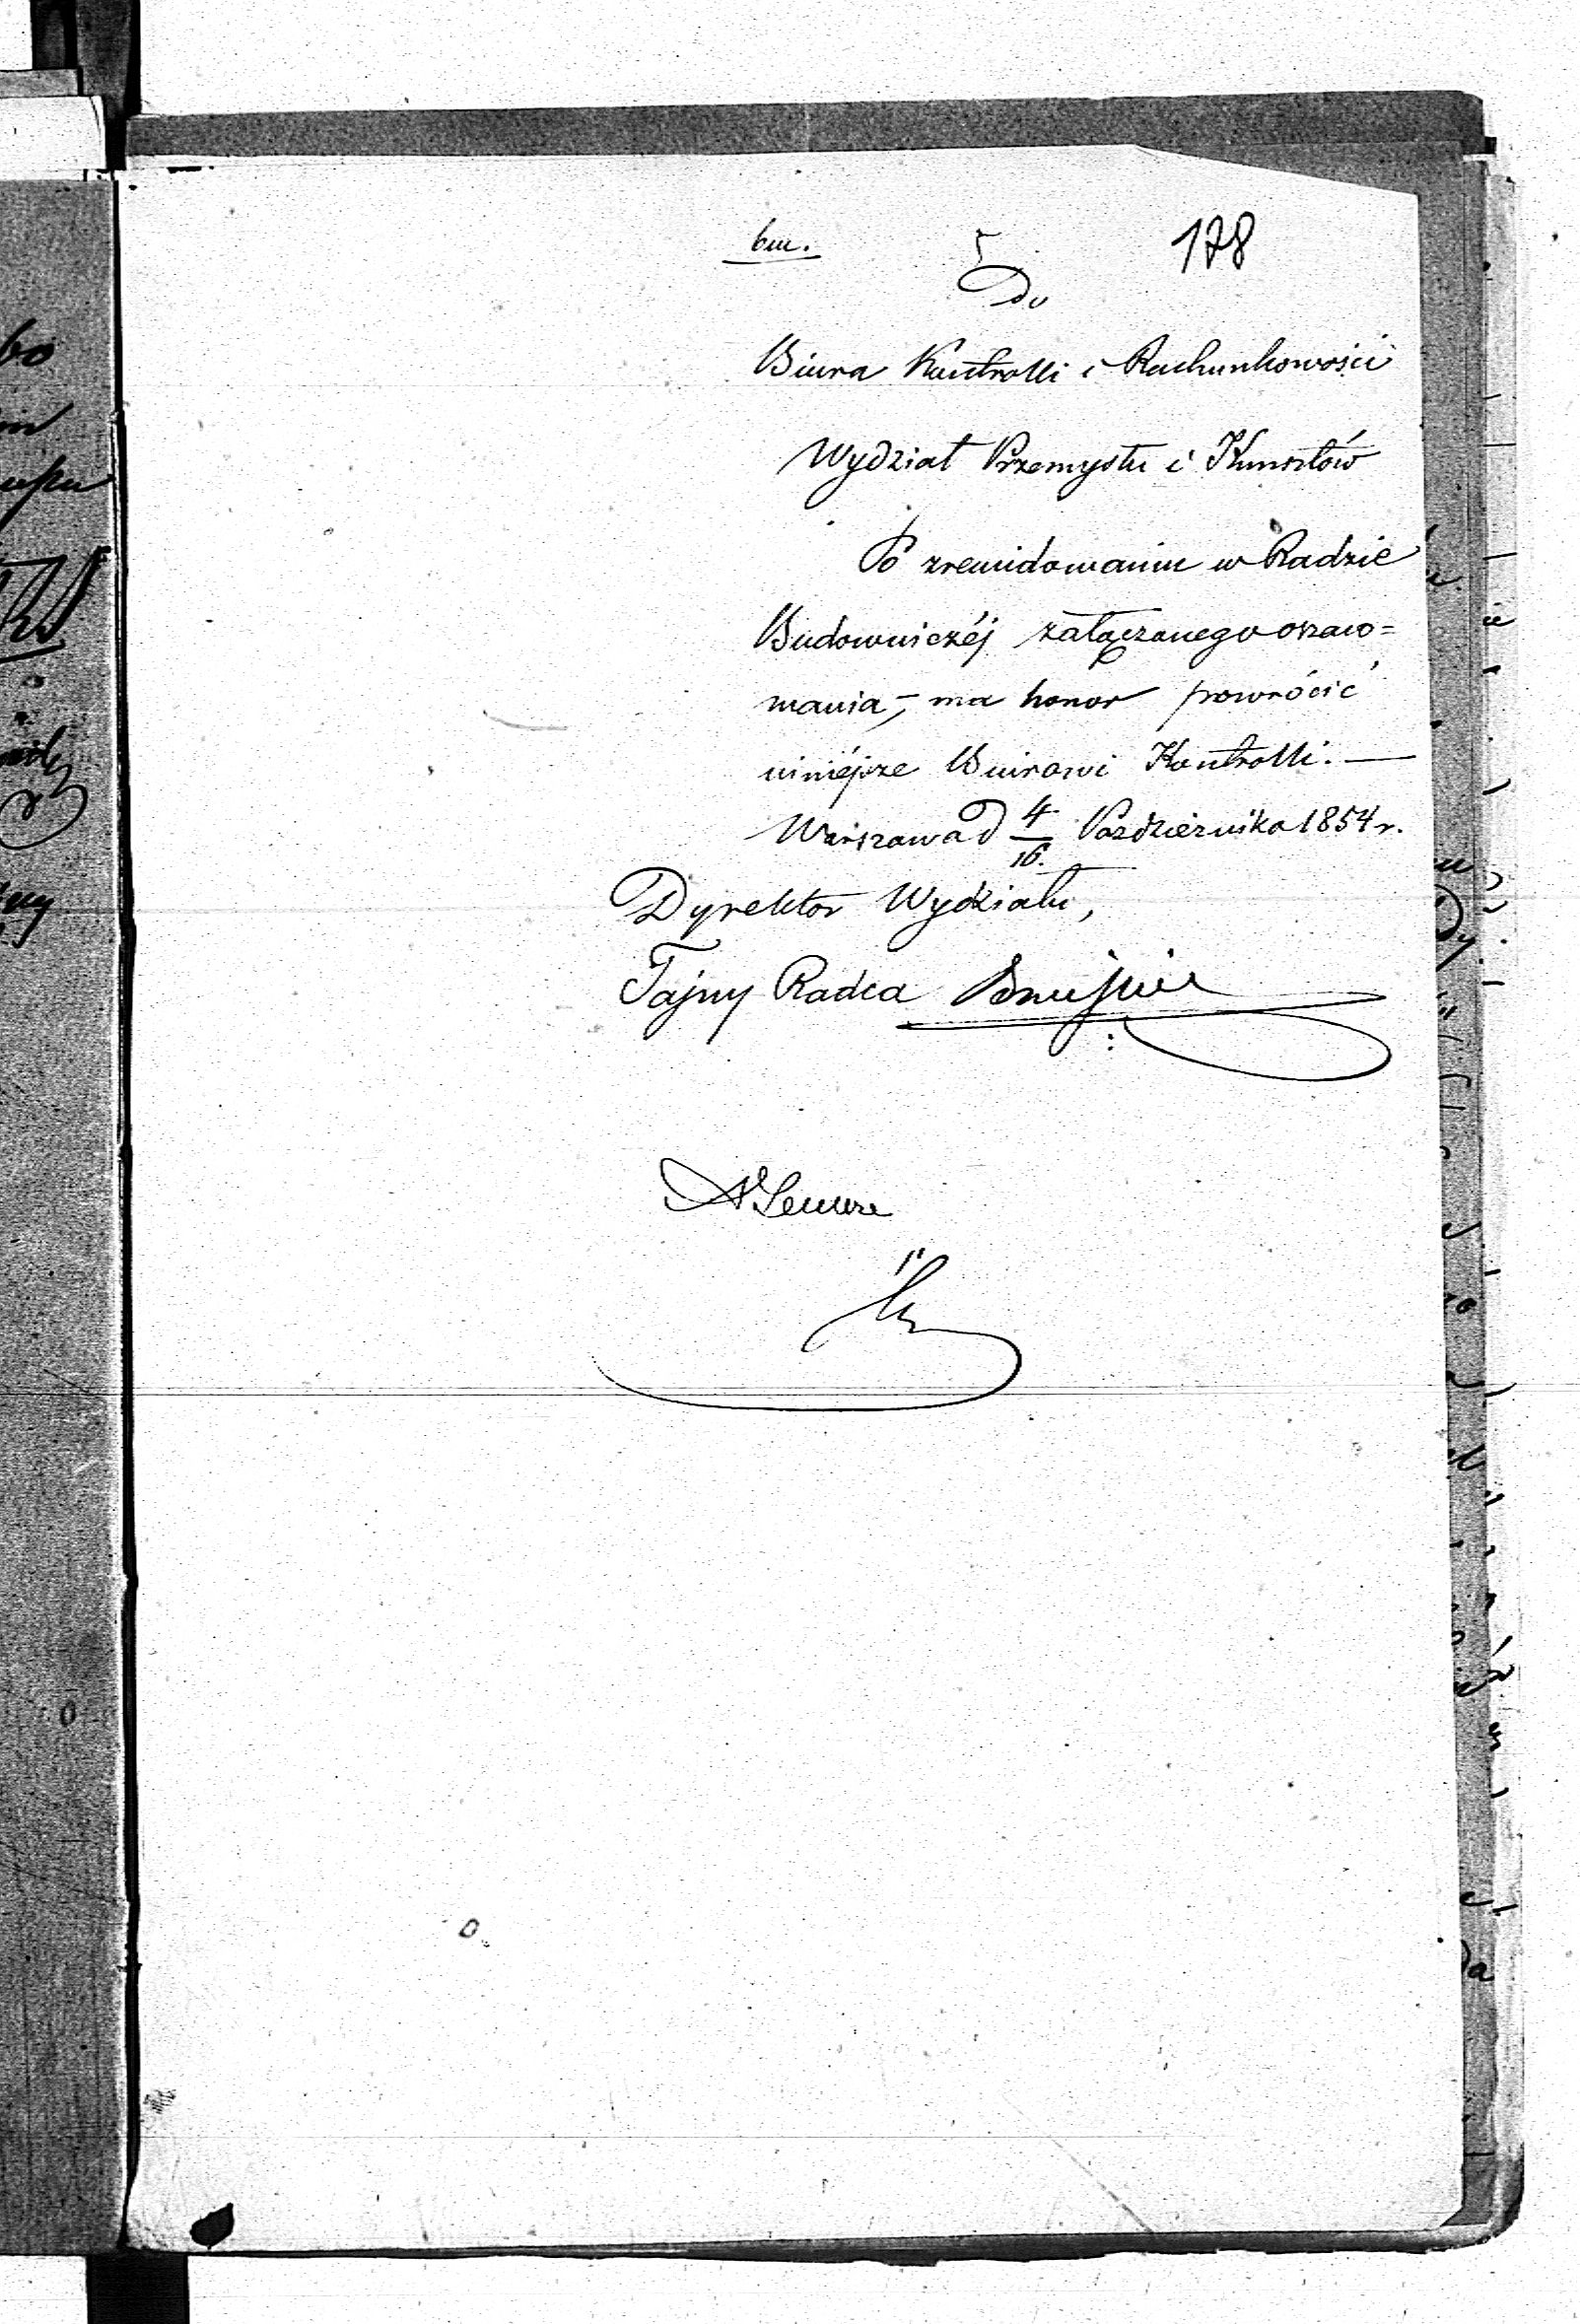 bm.
178
Do
Biura Kontrolli i Rachunkowości
Wydział Przemysłu i Kunsztów
Po zrewidowaniu w Radzie
Budowniczéj załączonego oszaco=
wania, ma honor powrócić
niniéjsze Biurowi Kontrolli. —
Warszawa d 4/16. Października 1854 r.
Dyrektor Wydziału,
Tajny Radca